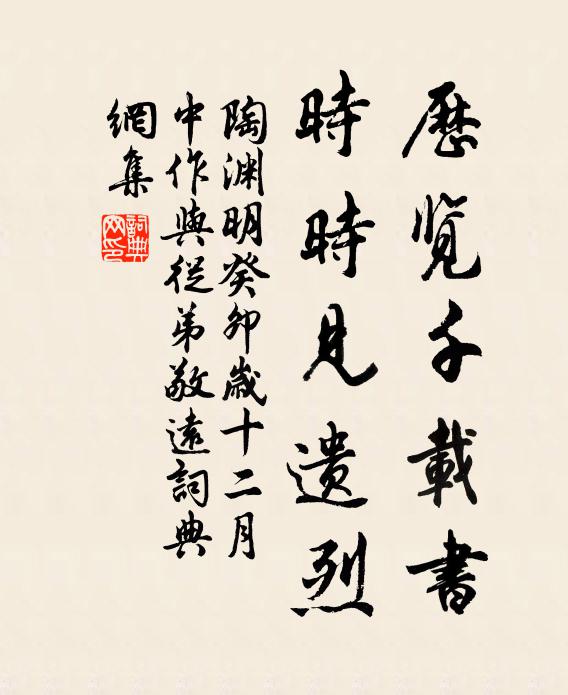 歷覽千載書
時時見遺烈
陶淵明癸卯歲十二月
中作與從弟敬遠詞典
網集
詞典
网印